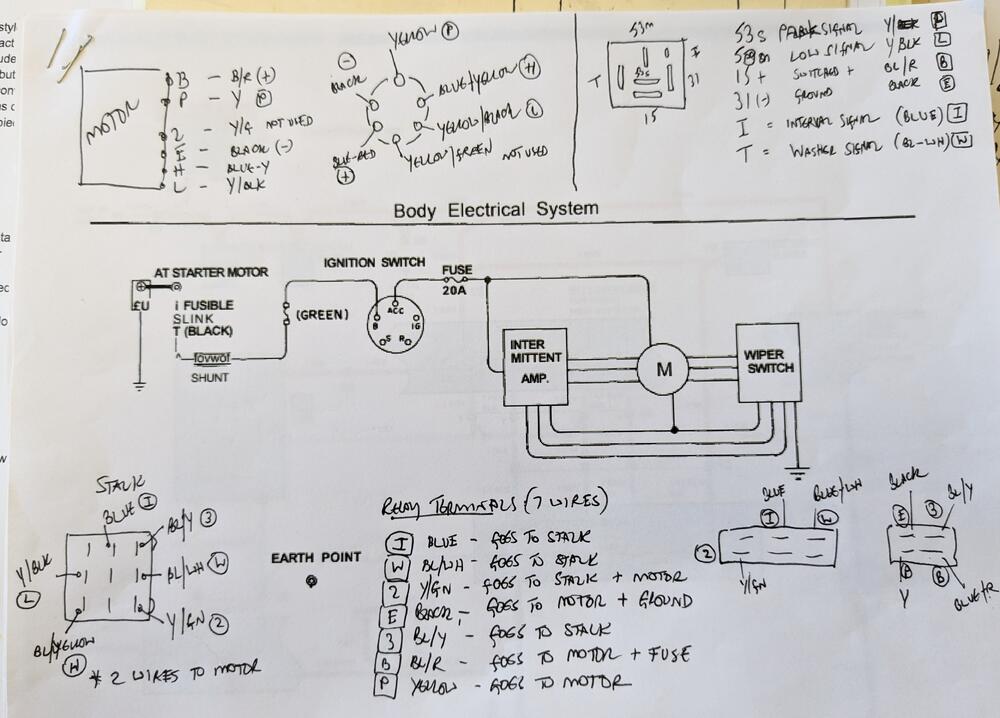 MOTOR
B – B/R (+)
P – Y (P)
2 – Y/G NOT USED
E – BLACK (–)
H – BLUE-Y
L – Y/BLK
YELLOW (P)
(–)
BLACK
BLUE/YELLOW (H)
YELLOW/BLACK (L)
YELLOW/GREEN NOT USED
BLUE-RED
(+)
53m
I
T
53s
31
15
53s PARK SIGNAL Y/ P
LOW SIGNAL Y/BLK L
15+ SWITCHED + BL/R B
31(-) GROUND BLACK E
I = INTERVAL SIGNAL (BLUE) I
T = WASHER SIGNAL (BL-WH) W
Body Electrical System
AT STARTER MOTOR
IGNITION SWITCH
FUSE
20A
£U
i FUSIBLE
SLINK
T (BLACK)
(GREEN)
ACC
B
IG
S
R
SHUNT
INTER
MITTENT
AMP.
M
WIPER
SWITCH
STALK
BLUE (I)
BL/Y (3)
Y/BLK
(L)
BL/WH (W)
Y/GN (2)
BL/YELLOW
(W)
* 2 WIRES TO MOTOR
EARTH POINT
RELAY TERMINALS (7 WIRES)
I BLUE – GOES TO STALK
W BL/WH – GOES TO STALK
2 Y/GN – GOES TO STALK + MOTOR
E BLACK – GOES TO MOTOR + GROUND
3 BL/Y – GOES TO STALK
B BL/R – GOES TO MOTOR + FUSE
P YELLOW – GOES TO MOTOR
BLUE
BLUE/WH
(I)
(W)
(2)
Y/GN
BLACK
BL/Y
(E)
(3)
(P)
(B)
Y
BLUE/R